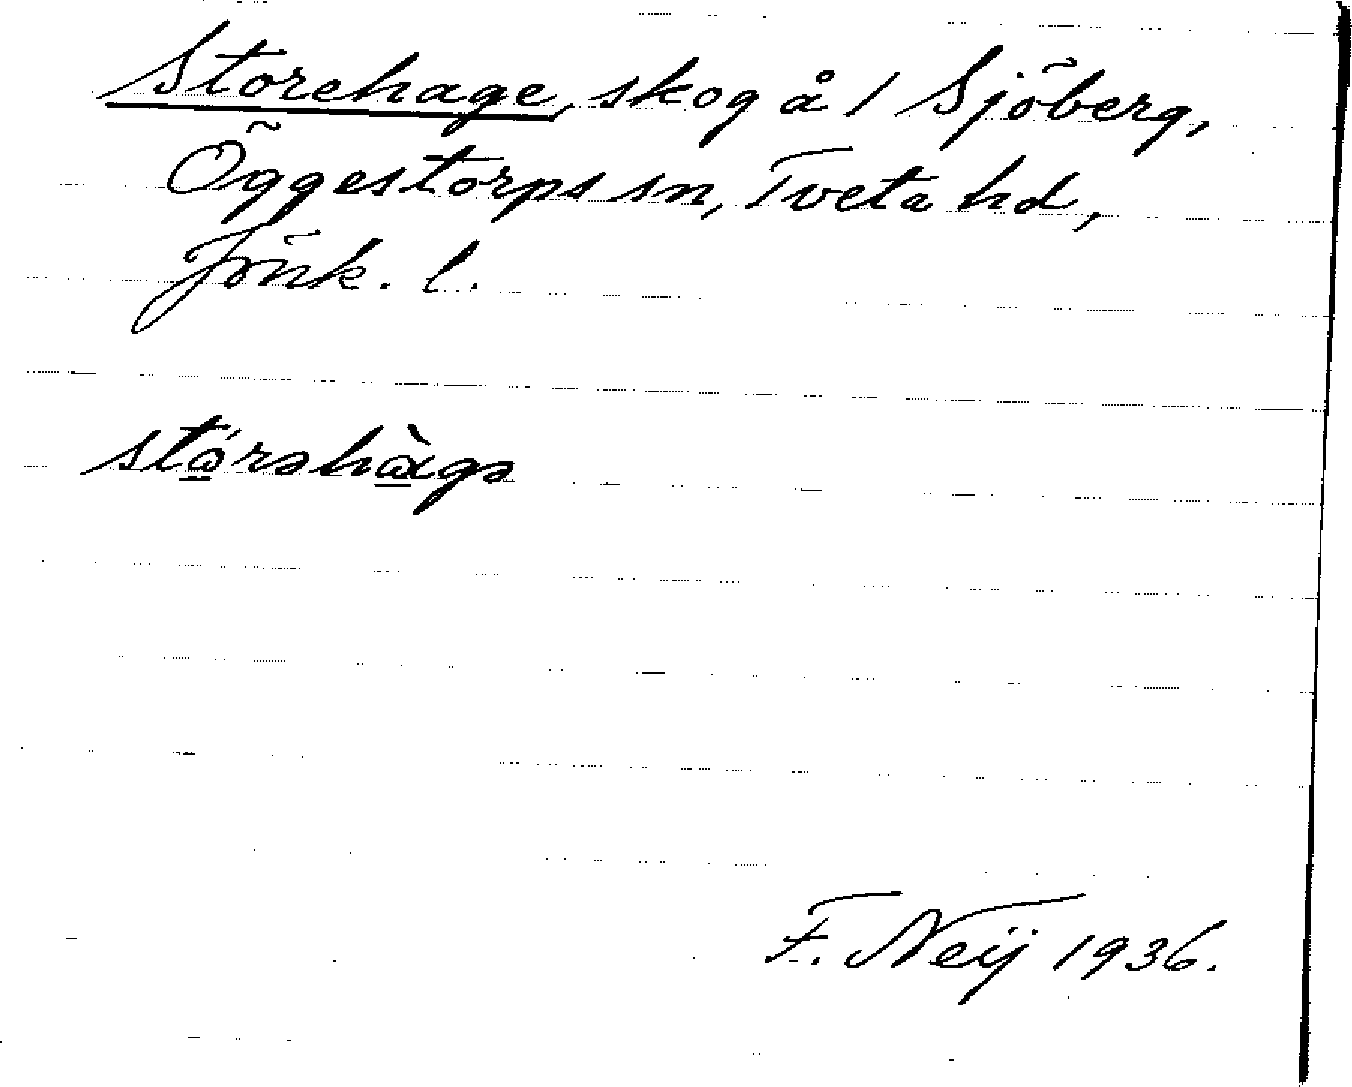 Storehage, skog å 1 Sjöberg,
Öggestorps sn, Tveta hd,
Jönk. l.
stó̠rəhà̠gə
F. Neij 1936.